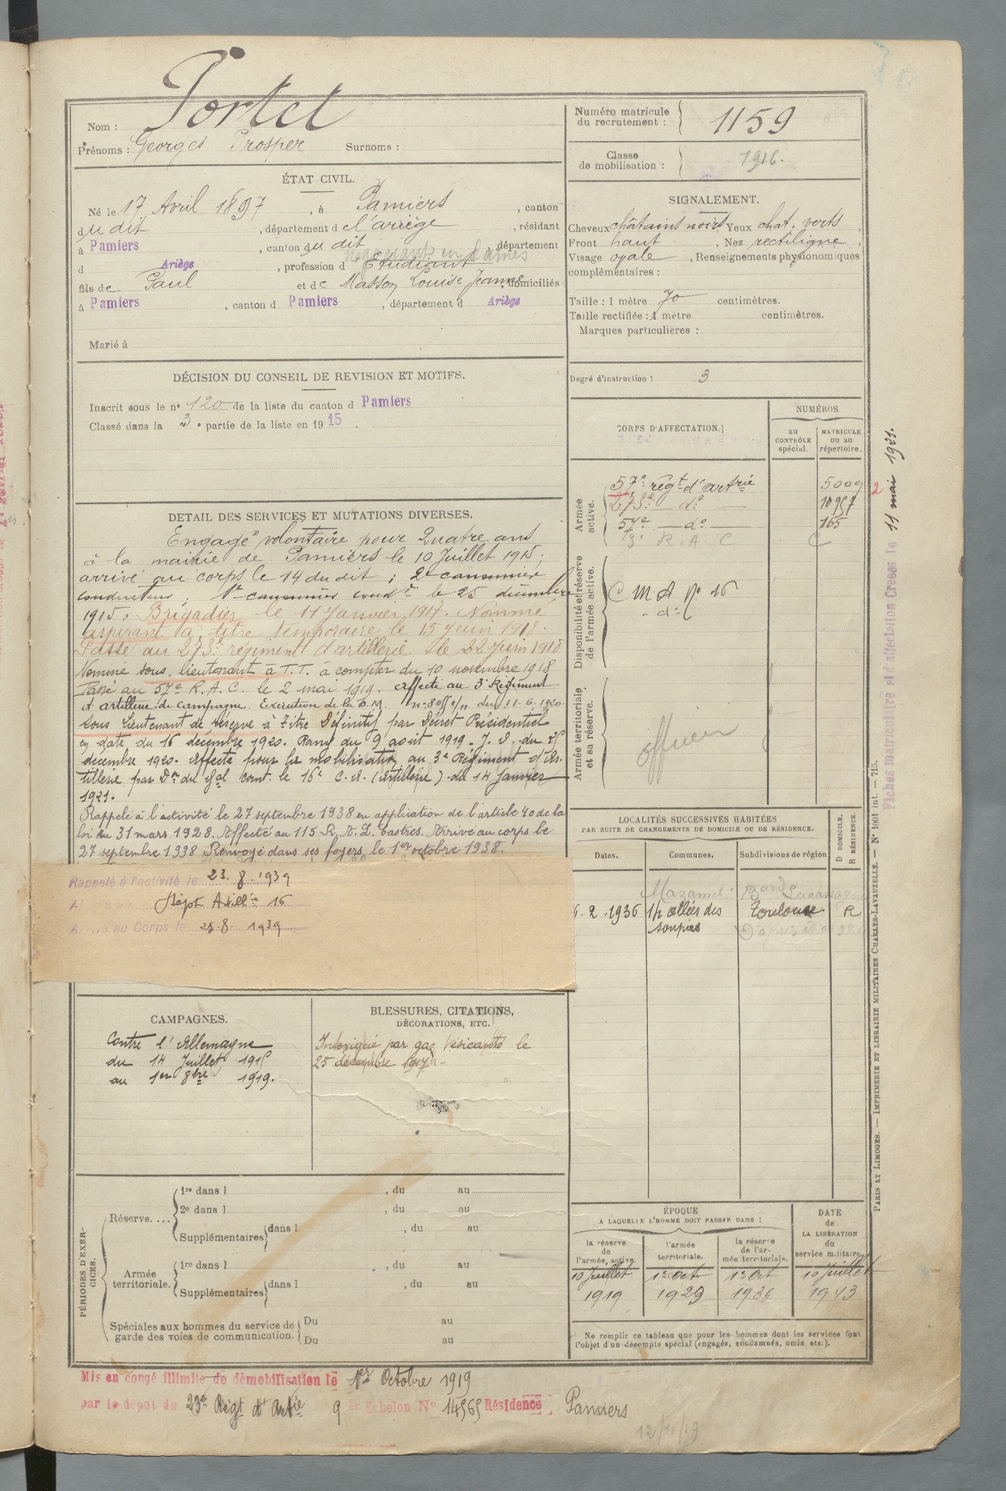 Nom : Portet
Prénoms : Georges Prosper Surnoms :
Numéro matricule du recrutement : 1159
Classe de mobilisation : 1916.
ÉTAT CIVIL.
Né le 17 Avril 1897, à Pamiers, canton
du dit, département de l'ariège, résidant
à Pamiers, canton du dit, département
d Ariège, profession d Etudiant
négociant en laines
fils de Paul et de Masson Louise Jeanne, domiciliés
à Pamiers, canton d Pamiers, département d Ariège
Marié à
SIGNALEMENT.
Cheveux châtains noirs Yeux chat. verts
Front haut, Nez rectiligne.
Visage ovale, Renseignements physionomiques
complémentaires :
Taille : 1 mètre 70 centimètres.
Taille rectifiée : 1 mètre centimètres.
Marques particulières :
Degré d'instruction : 3
DÉCISION DU CONSEIL DE REVISION ET MOTIFS.
Inscrit sous le n° 120 de la liste du canton d Pamiers
Classé dans la 3e partie de la liste en 1915.
DETAIL DES SERVICES ET MUTATIONS DIVERSES.
Engagé volontaire pour Quatre ans
à la mairie de Pamiers le 10 Juillet 1915;
arrivé au corps le 14 du dit; 2e canonnier
conducteur, 1er canonnier condr le 25 décembre
1915. Brigadier le 11 Janvier 1917. Nommé
aspirant à titre temporaire le 15 Juin 1918.
Passé au 273e régiment d'artillerie le 22 Juin 1918
Nommé sous lieutenant à T.T. à compter du 10 novembre 1918
Passé au 57e R.A.C. le 2 mai 1919. Affecté au 3e Régiment
d'artillerie de campagne. Exécution de la D.M. du 11-6-1920
Sous Lieutenant de réserve à Titre Définitif, par Décret Présidentiel
en date du 16 décembre 1920. Rang du 9 août 1919. J.O. du
décembre 1920. Affecté pour la mobilisation au 3e Régiment d'Ar-
tillerie par Don du Gal Comt. le 16e C.A. (Artillerie) du 14 Janvier
1921.
Rappelé à l'activité le 27 septembre 1938 en application de l'article 40 de la
loi du 31 mars 1928. Affecté au 115 R.A.L. Castres. Arrivé au corps le
27 septembre 1938 Renvoyé dans ses foyers le 1er octobre 1938.
Rappelé à l'activité le 23.8.1939
Dépt Artillie 16
Arrivé au Corps le 25.8.1939
CORPS D'AFFECTATION.
NUMÉROS
au CONTRÔLE spécial.
MATRICULE ou au répertoire.
Armée active.
57e régt d'artrie 5009
273e do 10957
57e do 165
3e R.A.C
Disponibilité et réserve de l'armée active.
C M A No 16
do
Armée territoriale et sa réserve.
officier
LOCALITÉS SUCCESSIVES HABITÉES
PAR SUITE DE CHANGEMENTS DE DOMICILE OU DE RÉSIDENCE.
Dates. Communes. Subdivisions de région D DOMICILE. R RÉSIDENCE.
Mazamet
6.2.1936 14 allées des soupirs Toulouse R
CAMPAGNES.
Contre l'Allemagne
du 14 Juillet 1915
au 1er 8bre 1919.
BLESSURES, CITATIONS,
DÉCORATIONS, ETC.
Intoxiqué par gaz vésicants le
25 décembre 1917.
PÉRIODES D'EXERCICES.
Réserve....
1re dans l , du au
2e dans l , du au
Supplémentaires dans l , du au
Armée territoriale.
1re dans l , du au
Supplémentaires dans l , du au
Spéciales aux hommes du service de
garde des voies de communication.
Du au
Du au
ÉPOQUE
A LAQUELLE L'HOMME DOIT PASSER DANS :
la réserve de l'armée active
l'armée territoriale.
la réserve de l'armée territoriale.
DATE de LA LIBÉRATION du service militaire.
10 Juillet 1er Oct 1er Oct 10 Juillet
1919 1929 1936 1943
Ne remplir ce tableau que pour les hommes dont les services font
l'objet d'un décompte spécial (engagés, condamnés, omis etc.).
Mis en congé illimité de démobilisation le 1er Octobre 1919
par le dépot du 23e Régt d'Artie 9e Echelon N° 14565 Résidence Pamiers
12/11/19
Fiches Matriculaire et d'affectation Créées le 11 mai 1921.
PARIS ET LIMOGES. — IMPRIMERIE ET LIBRAIRIE MILITAIRES CHARLES-LAVAUZELLE. — N° 1001 int. — 715.